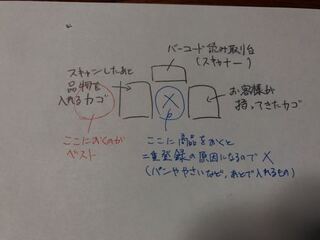 バーコード読み取り台
(スキャナー)
スキャンしたあと
品物を
入れるカゴ
お客様が
持ってきたカゴ
ここにおくのが
ベスト
ここに商品をおくと
二重登録の原因になるので×
(パンややさいなど、あとで入れるもの)